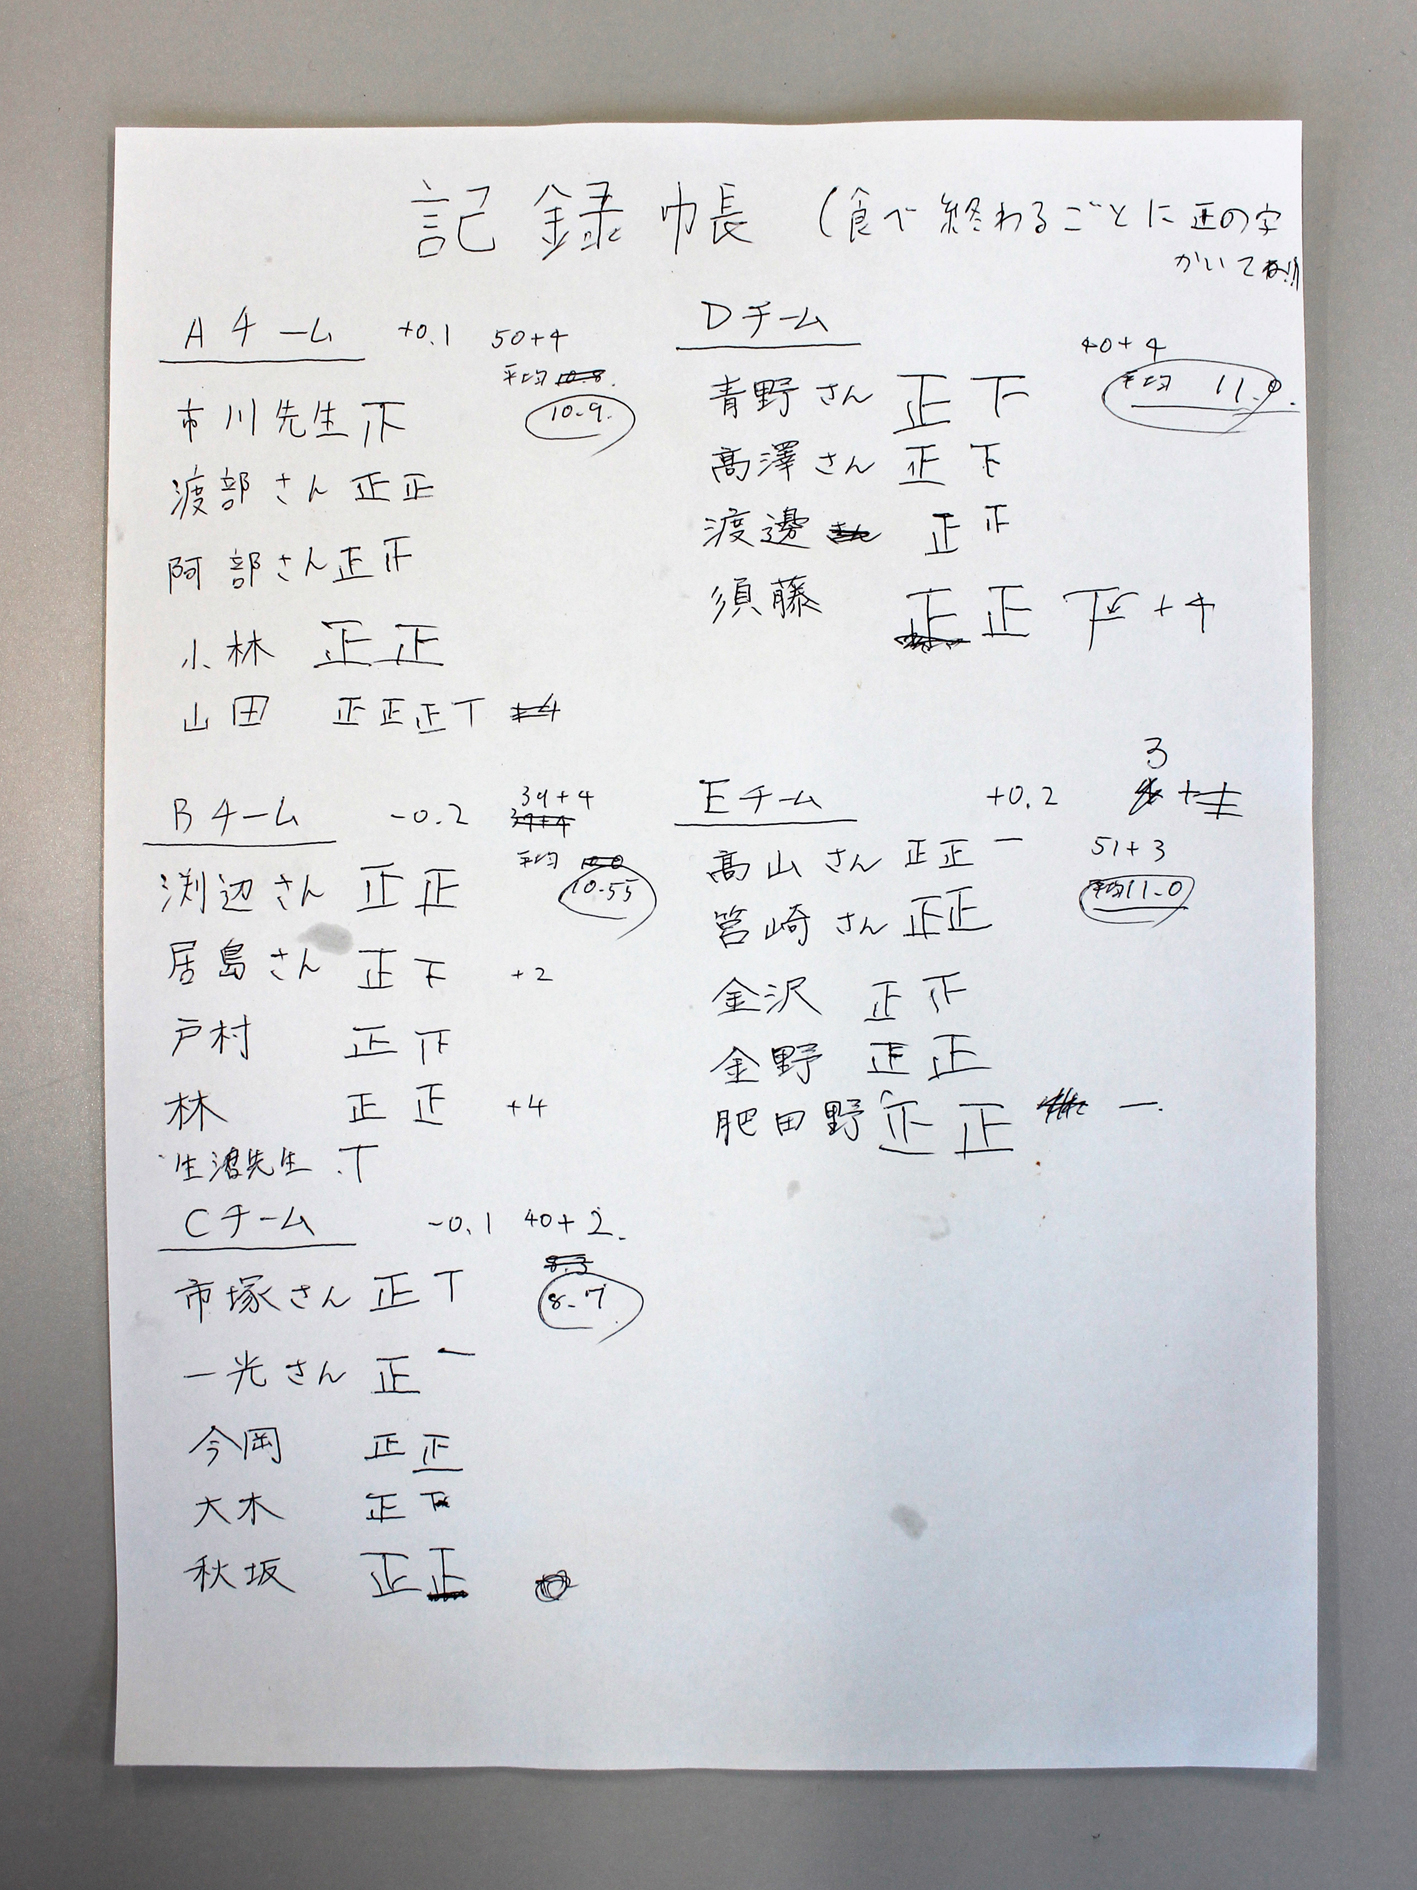 記録帳 (食べ終わるごとに正の字
かいてね!!
Aチーム +0.1 50+4
平均
10.9.
市川先生 下
渡部さん 正正
阿部さん 正正
小林 正正
山田 正正正T
Bチーム -0.2 39+4
平均
10.55
渕辺さん 正正
居島さん 正下 +2
戸村 正正
林 正正 +4
先生 T
Cチーム -0.1 40+2.
8.7
市塚さん 正T
一光さん 正一
今岡 正正
大木 正下
秋坂 正正
Dチーム
40+4
平均 11.0.
青野さん 正下
髙澤さん 正下
渡邊 正正
須藤 正正下+4
Eチーム +0.2 3
51+3
平均11.0
髙山さん 正正一
筥崎さん 正正
金沢 正正
金野 正正
肥田野 正正 一